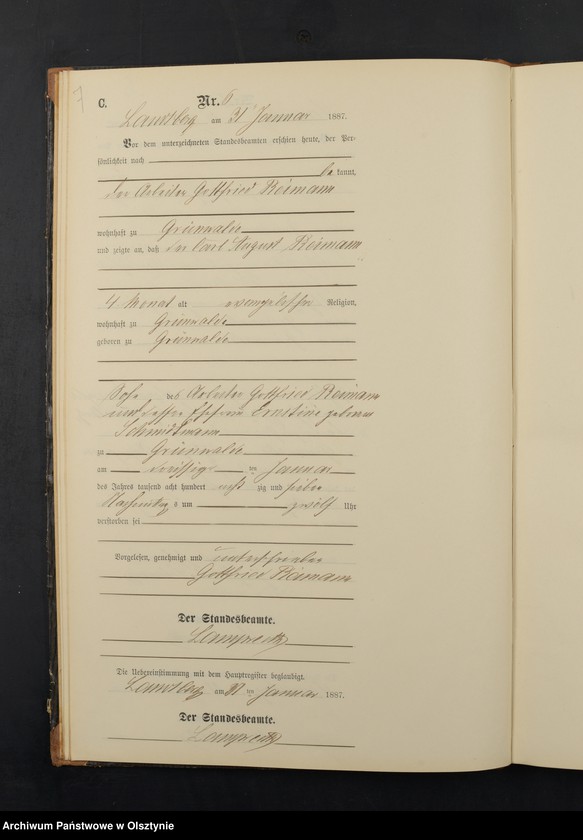 7
C.
Nr. 6
Landsberg am 31 Januar 1887.
Vor dem unterzeichneten Standesbeamten erschien heute, der Per-
sönlichkeit nach
be kannt,
der Arbeiter Gottfried Reimann
wohnhaft zu Grünwalde
und zeigte an, daß der Carl August Reimann
4 Monat alt evangelischer Religion,
wohnhaft zu Grünwalde
geboren zu Grünwalde
Sohn des Arbeiter Gottfried Reimann
und dessen Ehefrau Ernstine geborene
Schmidtmann
zu Grünwalde
am dreissig ten Januar
des Jahres tausend acht hundert acht zig und sieben
Nachmittag s um zwölf Uhr
verstorben sei
Vorgelesen, genehmigt und unterschrieben
Gottfried Reimann
Der Standesbeamte.
Lamprecht
Die Uebereinstimmung mit dem Hauptregister beglaubigt.
Landsberg am 31 ten Januar 1887.
Der Standesbeamte.
Lamprecht
Archiwum Państwowe w Olsztynie